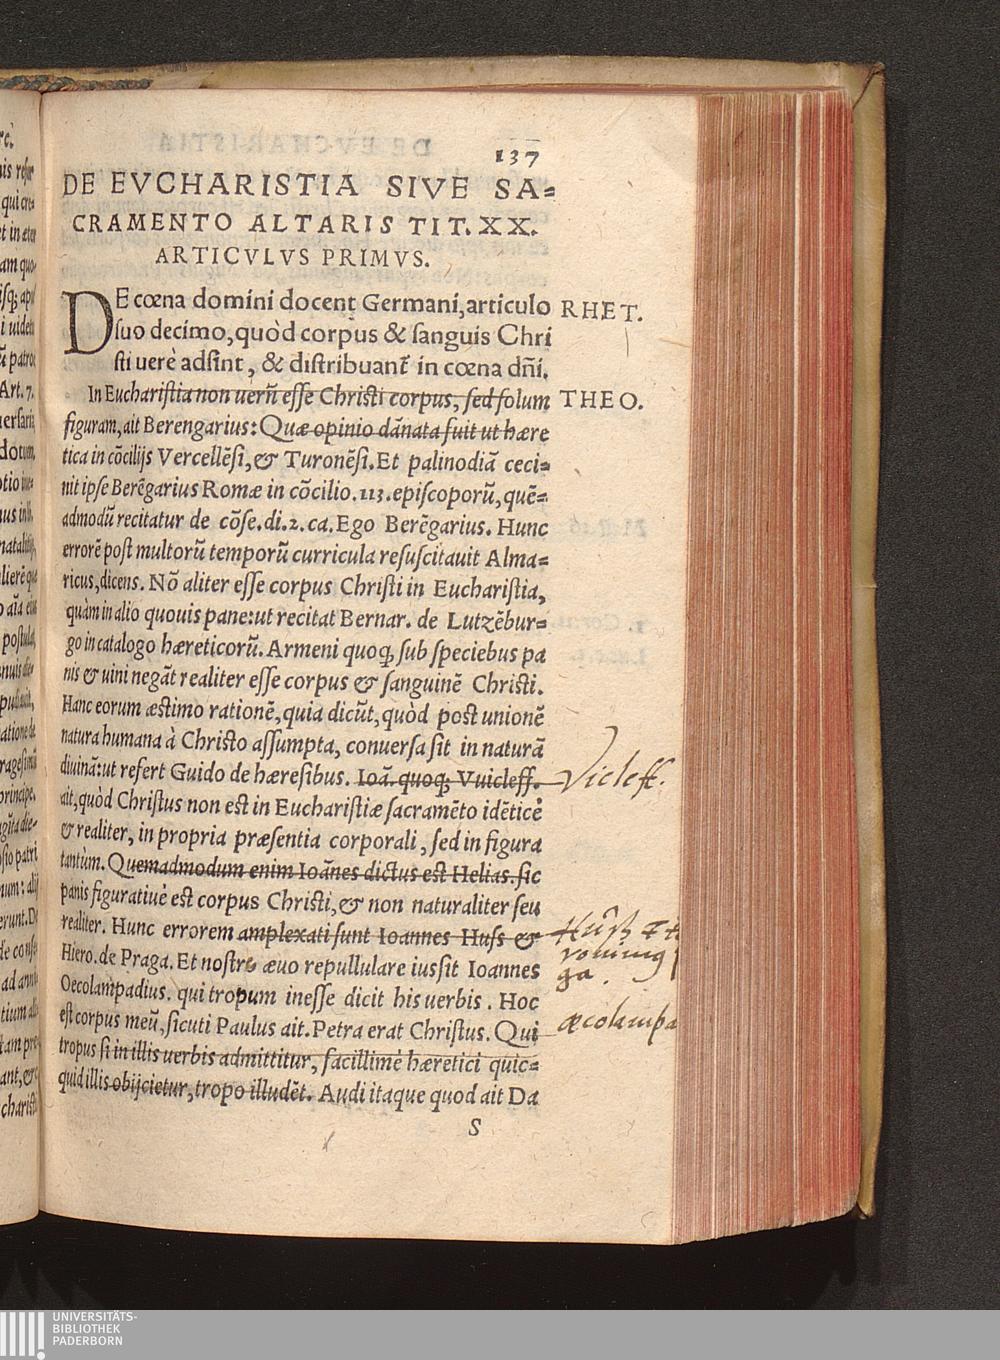 137
DE EVCHARISTIA SIVE SA=
CRAMENTO ALTARIS TIT. XX.
ARTICVLVS PRIMVS.
DE cœna domini docent Germani, articulo RHET.
suo decimo, quòd corpus & sanguis Chri
sti uerè adsint, & distribuant᷑ in cœna dn̄i.
In Eucharistia non uerū esse Christi corpus, sed solum THEO.
figuram, ait Berengarius: Quæ opinio dānata fuit ut hære
tica in cōcilijs Vercellēsi, & Turonēsi. Et palinodiā ceci=
nit ipse Berēgarius Romæ in cōcilio. 113. episcoporū, quē=
admodū recitatur de cōse. di. 2. ca. Ego Berēgarius. Hunc
errorē post multorū temporū curricula resuscitauit Alma=
ricus, dicens. Nō aliter esse corpus Christi in Eucharistia,
quàm in alio quouis pane: ut recitat Bernar. de Lutzēbur=
go in catalogo hæreticorū. Armeni quoq; sub speciebus pa
nis & uini negāt realiter esse corpus & sanguinē Christi.
Hanc eorum æstimo rationē, quia dicūt, quòd post unionē
natura humana à Christo assumpta, conuersa sit in naturā
diuinā: ut refert Guido de hæresibus. Ioā. quoq; Vuicleff. Vicleff.
ait, quòd Christus non est in Eucharistiæ sacramēto idēticè
& realiter, in propria præsentia corporali, sed in figura
tantùm. Quemadmodum enim Ioānes dictus est Helias. sic
panis figuratiuè est corpus Christi, & non naturaliter seu
realiter. Hunc errorem amplexati sunt Ioannes Huss &
Hiero. de Praga. Et nostro æuo repullulare iussit Ioannes
Oecolampadius. qui tropum inesse dicit his uerbis. Hoc
est corpus meū, sicuti Paulus ait. Petra erat Christus. Qui œcolampa
tropus si in illis uerbis admittitur, facillimè hæretici quic=
quid illis obijcietur, tropo illudēt. Audi itaque quod ait Da
S
UNIVERSITÄTS-
BIBLIOTHEK
PADERBORN